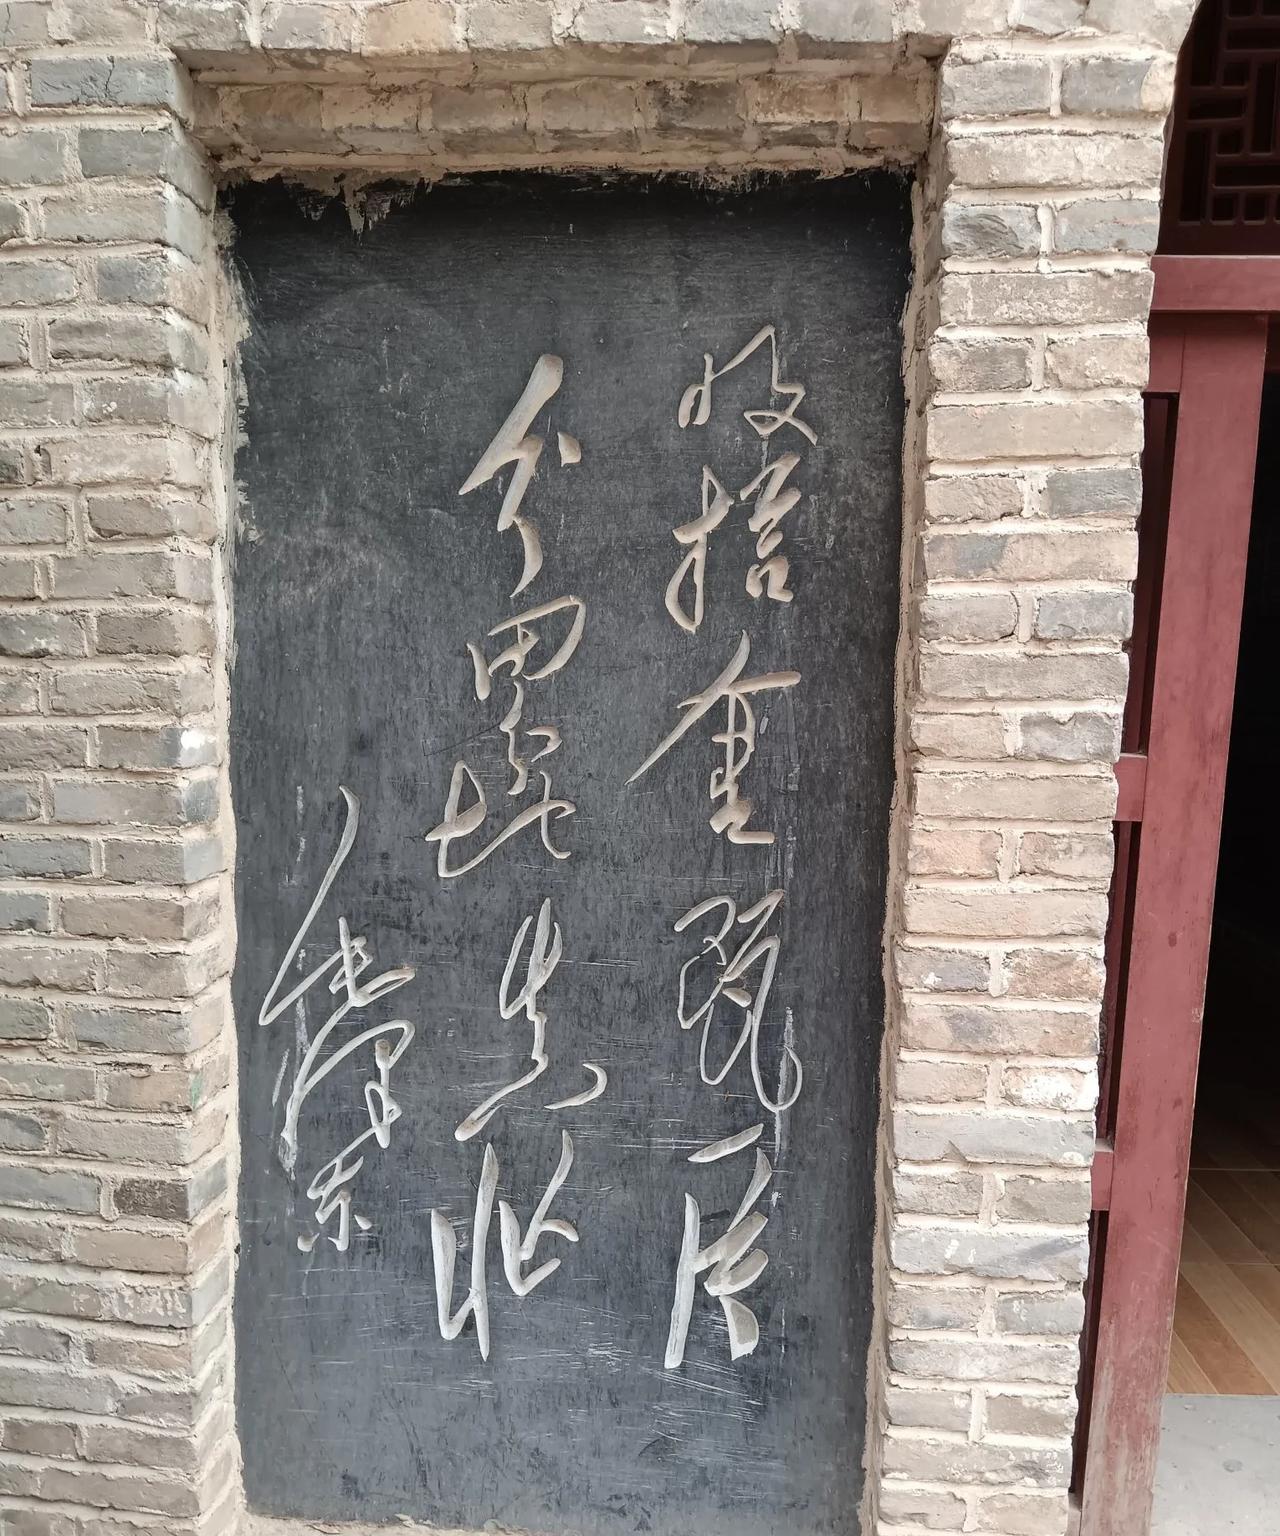 收拾金瓯一片
分田分地真忙
毛泽东